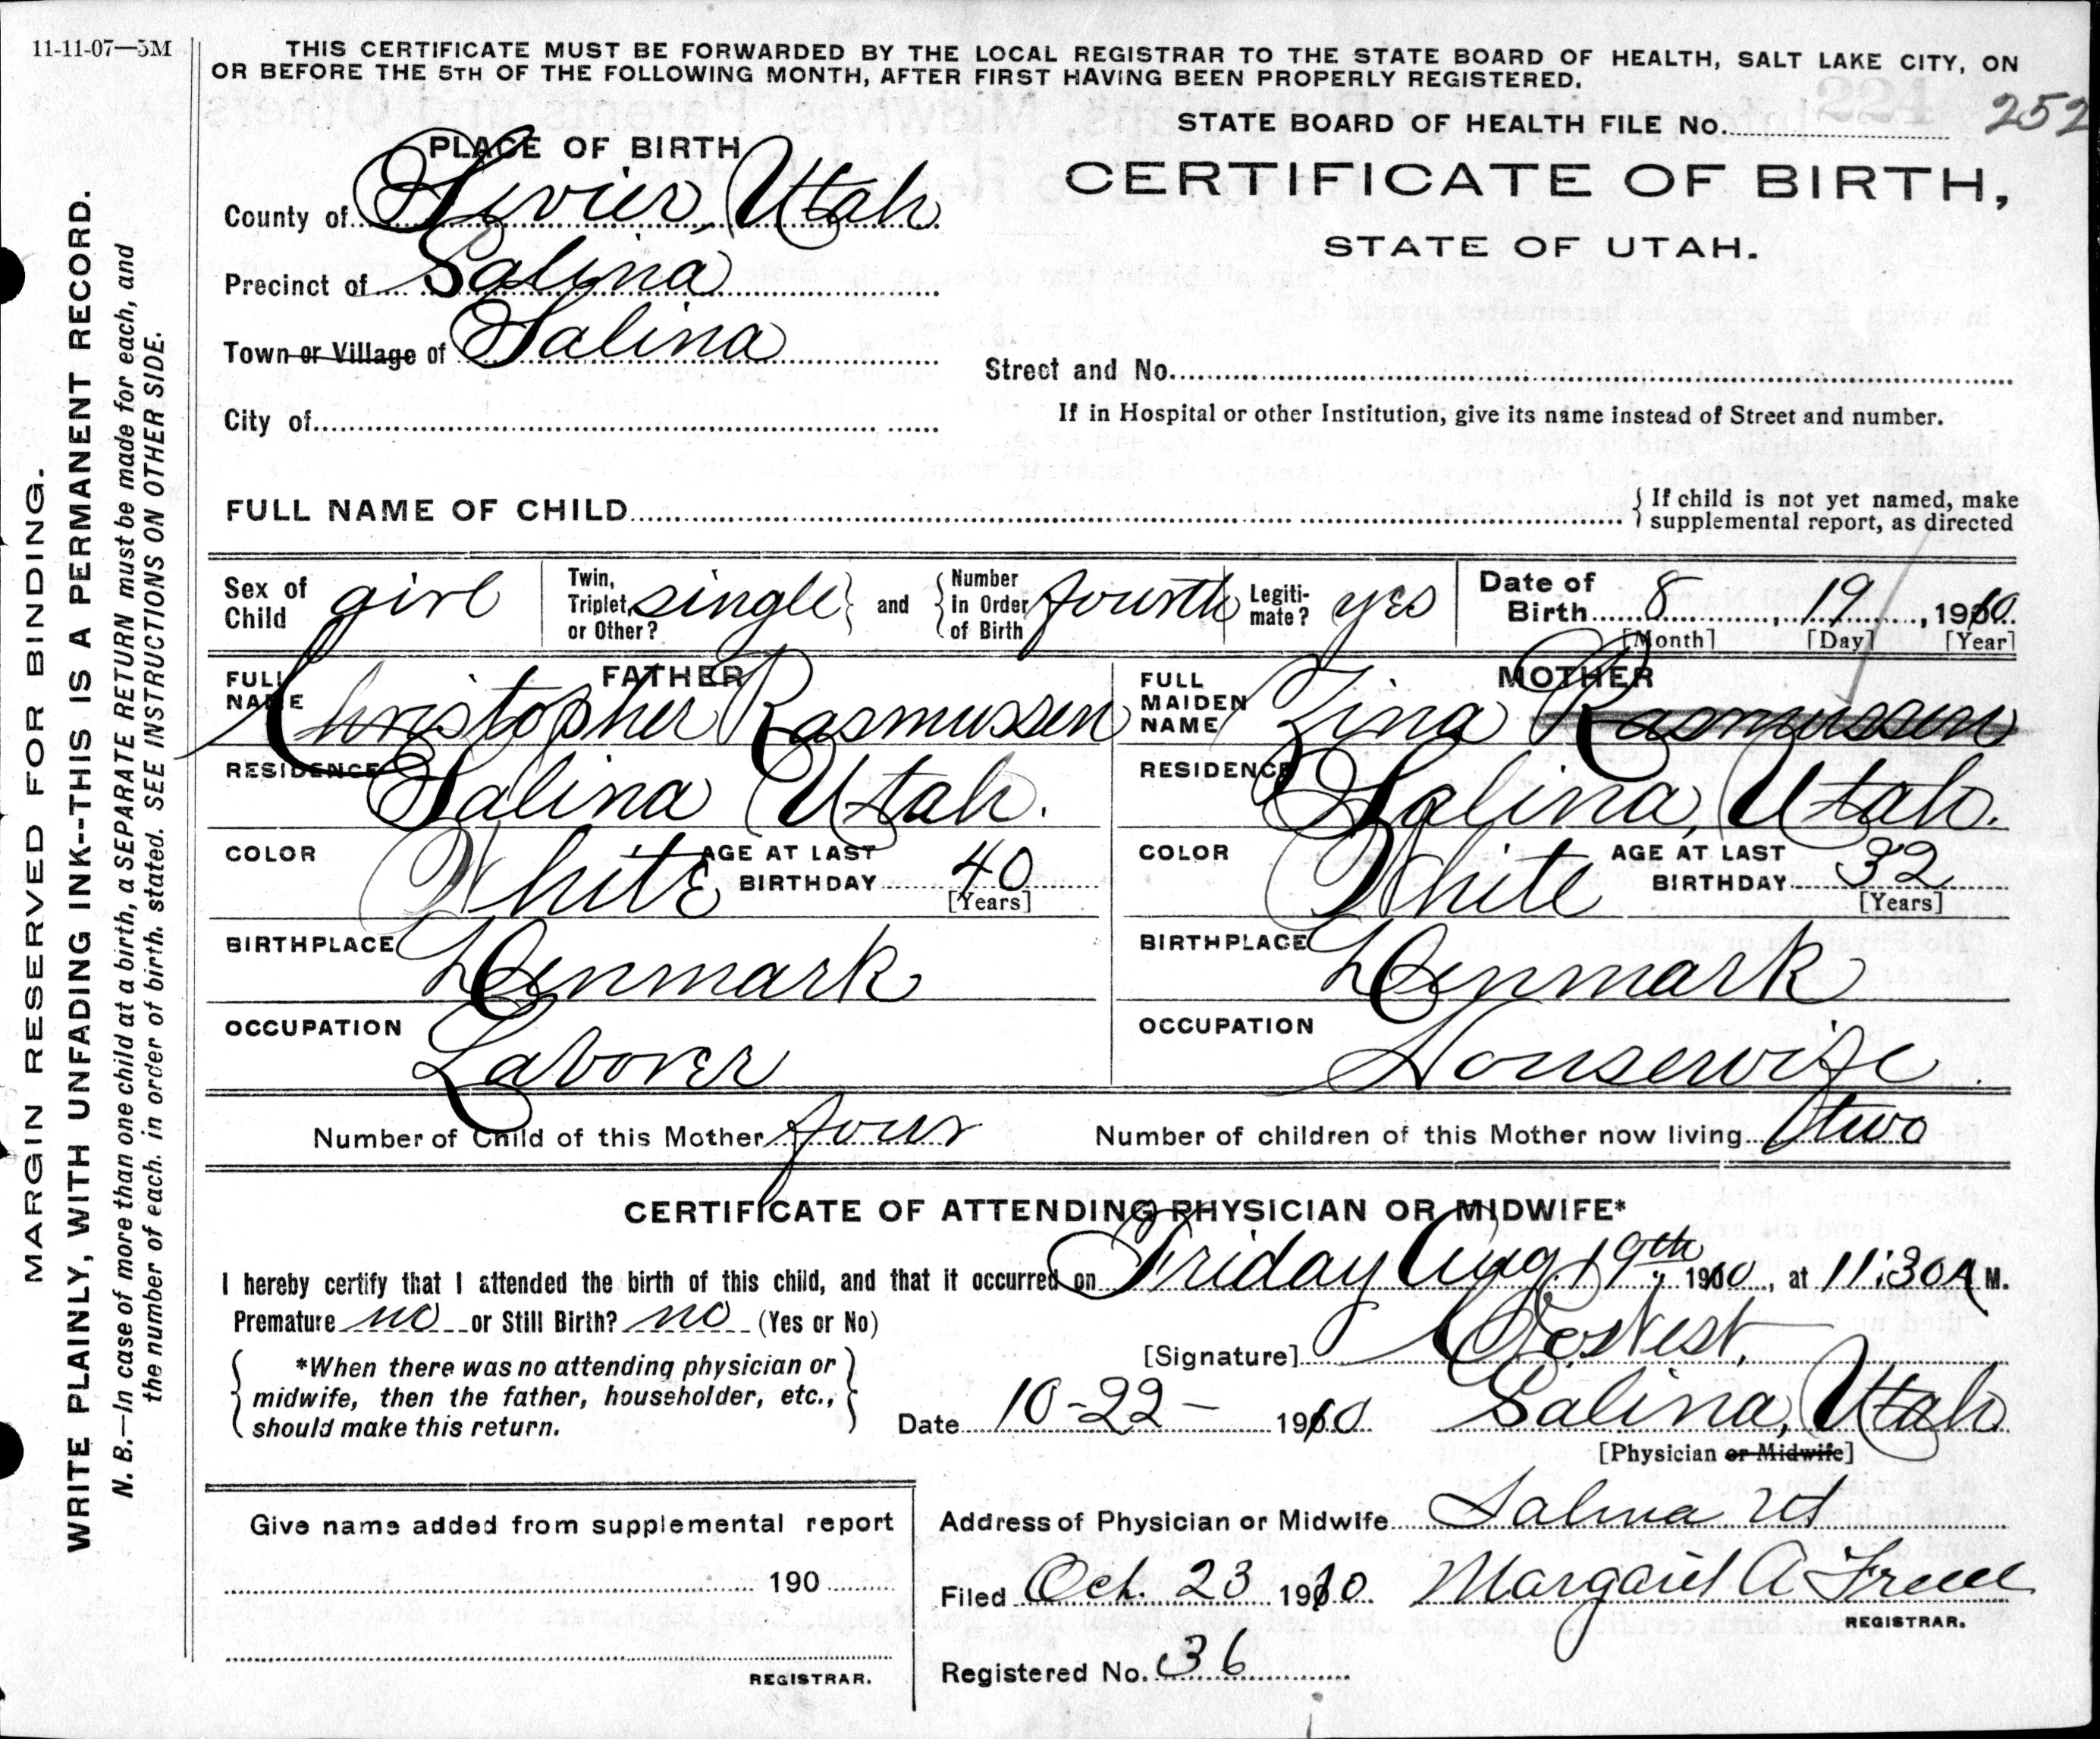 11-11-07—5M
THIS CERTIFICATE MUST BE FORWARDED BY THE LOCAL REGISTRAR TO THE STATE BOARD OF HEALTH, SALT LAKE CITY, ON
OR BEFORE THE 5TH OF THE FOLLOWING MONTH, AFTER FIRST HAVING BEEN PROPERLY REGISTERED.
STATE BOARD OF HEALTH FILE No. 252
PLACE OF BIRTH
CERTIFICATE OF BIRTH,
STATE OF UTAH.
County of Sevier, Utah
Precinct of Salina
Town or Village of Salina
Street and No.
City of
If in Hospital or other Institution, give its name instead of Street and number.
FULL NAME OF CHILD
{ If child is not yet named, make
supplemental report, as directed
Sex of Child girl
Twin, Triplet, or Other? single } and { Number in Order of Birth fourth
Legiti-mate? yes
Date of Birth 8, 19, 1910
[Month] [Day] [Year]
FATHER
FULL NAME Christopher Rasmussen
RESIDENCE Salina Utah.
COLOR White AGE AT LAST BIRTHDAY 40 [Years]
BIRTHPLACE Denmark
OCCUPATION Laborer
MOTHER
FULL MAIDEN NAME Zina Rasmussen
RESIDENCE Salina, Utah.
COLOR White AGE AT LAST BIRTHDAY 32 [Years]
BIRTHPLACE Denmark
OCCUPATION Housewife
Number of Child of this Mother four Number of children of this Mother now living two
CERTIFICATE OF ATTENDING PHYSICIAN OR MIDWIFE*
I hereby certify that I attended the birth of this child, and that it occurred on Friday Aug. 19th, 1910, at 11:30 A M.
Premature no or Still Birth? no (Yes or No)
[Signature]
{ *When there was no attending physician or
midwife, then the father, householder, etc.,
should make this return. }
Date 10-22- 1910 Salina, Utah
[Physician or Midwife]
Give name added from supplemental report
190
REGISTRAR.
Address of Physician or Midwife Salina Ut
Filed Oct. 23 1910 Margaret A
REGISTRAR.
Registered No. 36
MARGIN RESERVED FOR BINDING.
WRITE PLAINLY, WITH UNFADING INK--THIS IS A PERMANENT RECORD.
N. B.—In case of more than one child at a birth, a SEPARATE RETURN must be made for each, and
the number of each. in order of birth. stated. SEE INSTRUCTIONS ON OTHER SIDE.